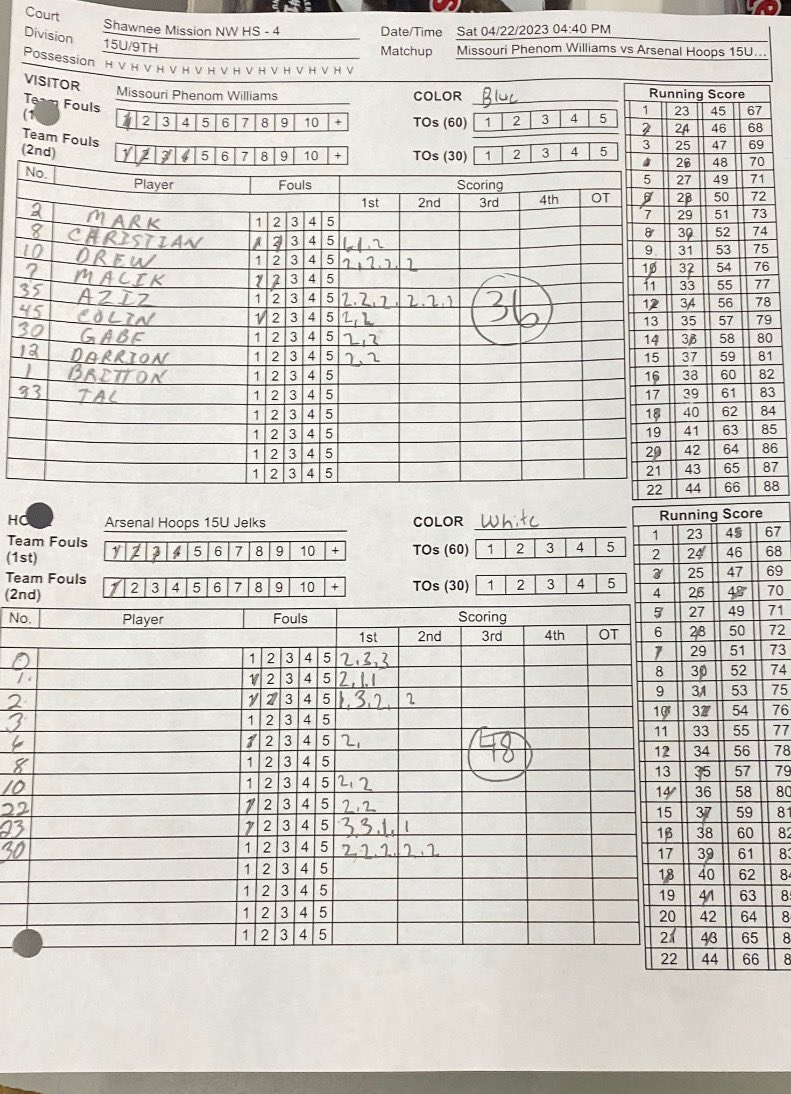 Court Shawnee Mission NW HS - 4 Date/Time Sat 04/22/2023 04:40 PM
Division 15U/9TH Matchup Missouri Phenom Williams vs Arsenal Hoops 15U...
Possession H V H V H V H V H V H V H V H V H V H V
VISITOR Missouri Phenom Williams COLOR Blue Running Score
Fouls 1 2 3 4 5 6 7 8 9 10 + TOs (60) 1 2 3 4 5
Team Fouls (2nd) 1 2 3 4 5 6 7 8 9 10 + TOs (30) 1 2 3 4 5
No. Player Fouls Scoring
1st 2nd 3rd 4th OT
2 MARK 1 2 3 4 5
8 CHRISTIAN 1 2 3 4 5
10 DREW 1 2 3 4 5 2,2,2,2
MALIK 1 2 3 4 5
35 AZIZ 1 2 3 4 5 36
45 COLIN 1 2 3 4 5 2,2
30 GABE 1 2 3 4 5 2,2
12 DARRION 1 2 3 4 5 2,2
1 BRITTON 1 2 3 4 5
33 TAL 1 2 3 4 5
1 2 3 4 5
1 2 3 4 5
1 2 3 4 5
1 2 3 4 5
1 23 45 67
2 24 46 68
3 25 47 69
4 26 48 70
5 27 49 71
6 28 50 72
7 29 51 73
8 30 52 74
9 31 53 75
10 32 54 76
11 33 55 77
12 34 56 78
13 35 57 79
14 36 58 80
15 37 59 81
16 38 60 82
17 39 61 83
18 40 62 84
19 41 63 85
20 42 64 86
21 43 65 87
22 44 66 88
Arsenal Hoops 15U Jelks COLOR White Running Score
Team Fouls (1st) 1 2 3 4 5 6 7 8 9 10 + TOs (60) 1 2 3 4 5
Team Fouls (2nd) 1 2 3 4 5 6 7 8 9 10 + TOs (30) 1 2 3 4 5
No. Player Fouls Scoring
1st 2nd 3rd 4th OT
0 1 2 3 4 5 2,3,3
1 1 2 3 4 5 2,1,1
2 1 2 3 4 5 1,3,2, 2
3 1 2 3 4 5
1 2 3 4 5 2, 48
8 1 2 3 4 5
10 1 2 3 4 5 2,2
22 1 2 3 4 5 2,2
23 1 2 3 4 5 3,3,1,1
30 1 2 3 4 5 2,2,2,2,2
1 2 3 4 5
1 2 3 4 5
1 2 3 4 5
1 2 3 4 5
1 23 45 67
2 24 46 68
3 25 47 69
4 26 48 70
5 27 49 71
6 28 50 72
7 29 51 73
8 30 52 74
9 31 53 75
10 32 54 76
11 33 55 77
12 34 56 78
13 35 57 79
14 36 58 80
15 37 59 81
16 38 60 82
17 39 61 83
18 40 62 84
19 41 63 8
20 42 64 8
21 43 65 8
22 44 66 8